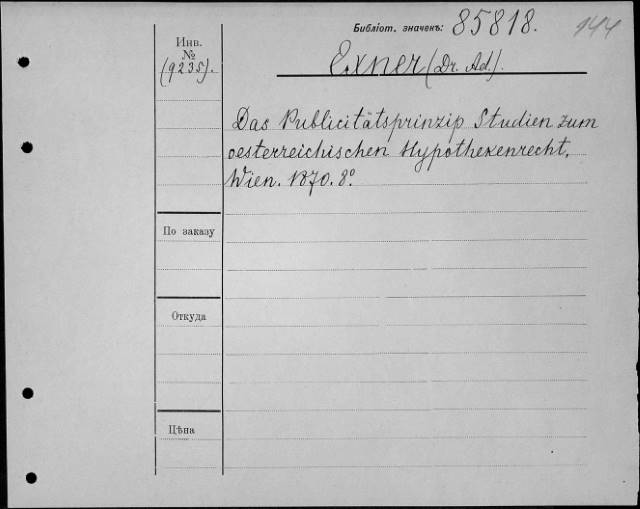 Библіот. значекъ: 85818. 944
Инв.
№
(9235).
Exner (Dr. Ad.).
Das Publicitätsprinzip Studien zum
oesterreichischen Hypothekenrecht.
Wien. 1870. 8º.
По заказу
Откуда
Цѣна